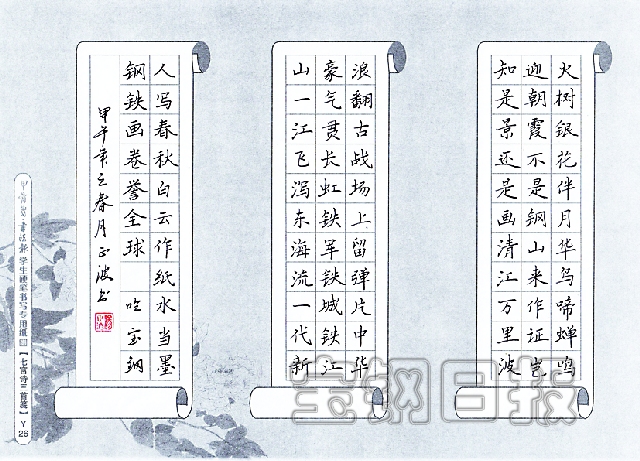 火树银花伴月华鸟啼蝉鸣
迎朝霞不是钢山来作证岂
知是景还是画清江万里波
浪翻古战场上留弹片中华
豪气贯长虹铁军铁城铁江
山一江飞泻东海流一代新
人写春秋白云作纸水当墨
钢铁画卷誉全球 咏宝钢
甲午年之春月正波书
学生硬笔书写专用 【七言诗三首笺】 Y 26
宝钢日报